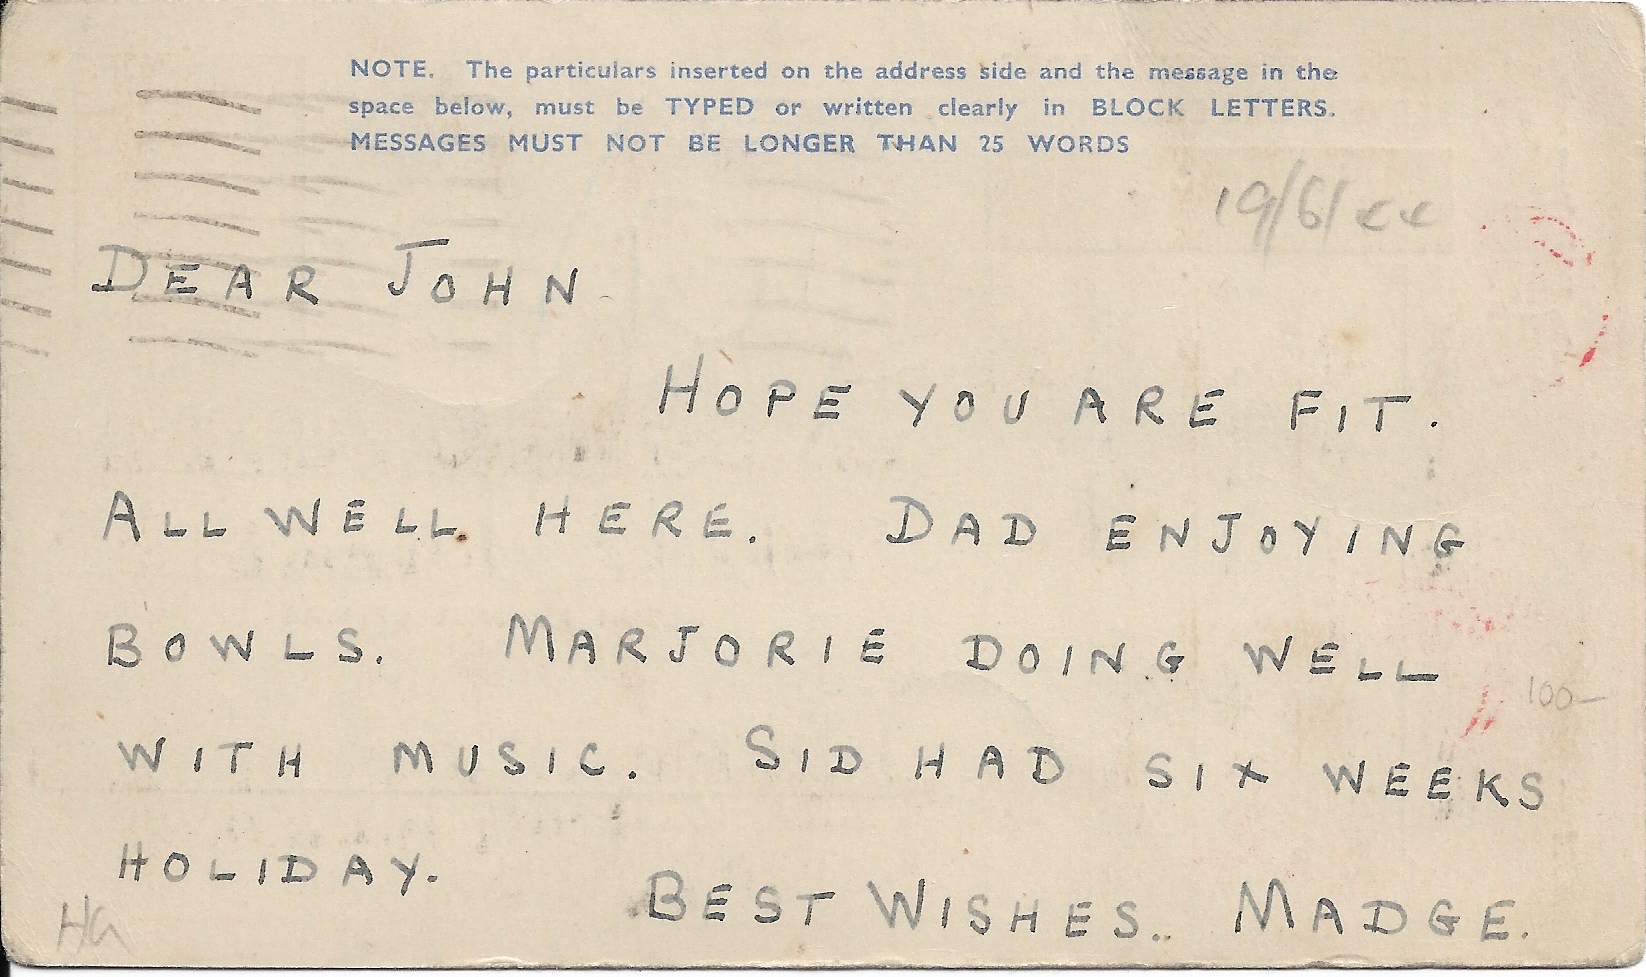 NOTE. The particulars inserted on the address side and the message in the
space below, must be TYPED or written clearly in BLOCK LETTERS.
MESSAGES MUST NOT BE LONGER THAN 25 WORDS
19/6/44
DEAR JOHN
HOPE YOU ARE FIT.
ALL WELL HERE. DAD ENJOYING
BOWLS. MARJORIE DOING WELL
100-
WITH MUSIC. SID HAD SIX WEEKS
HOLIDAY.
BEST WISHES.. MADGE.